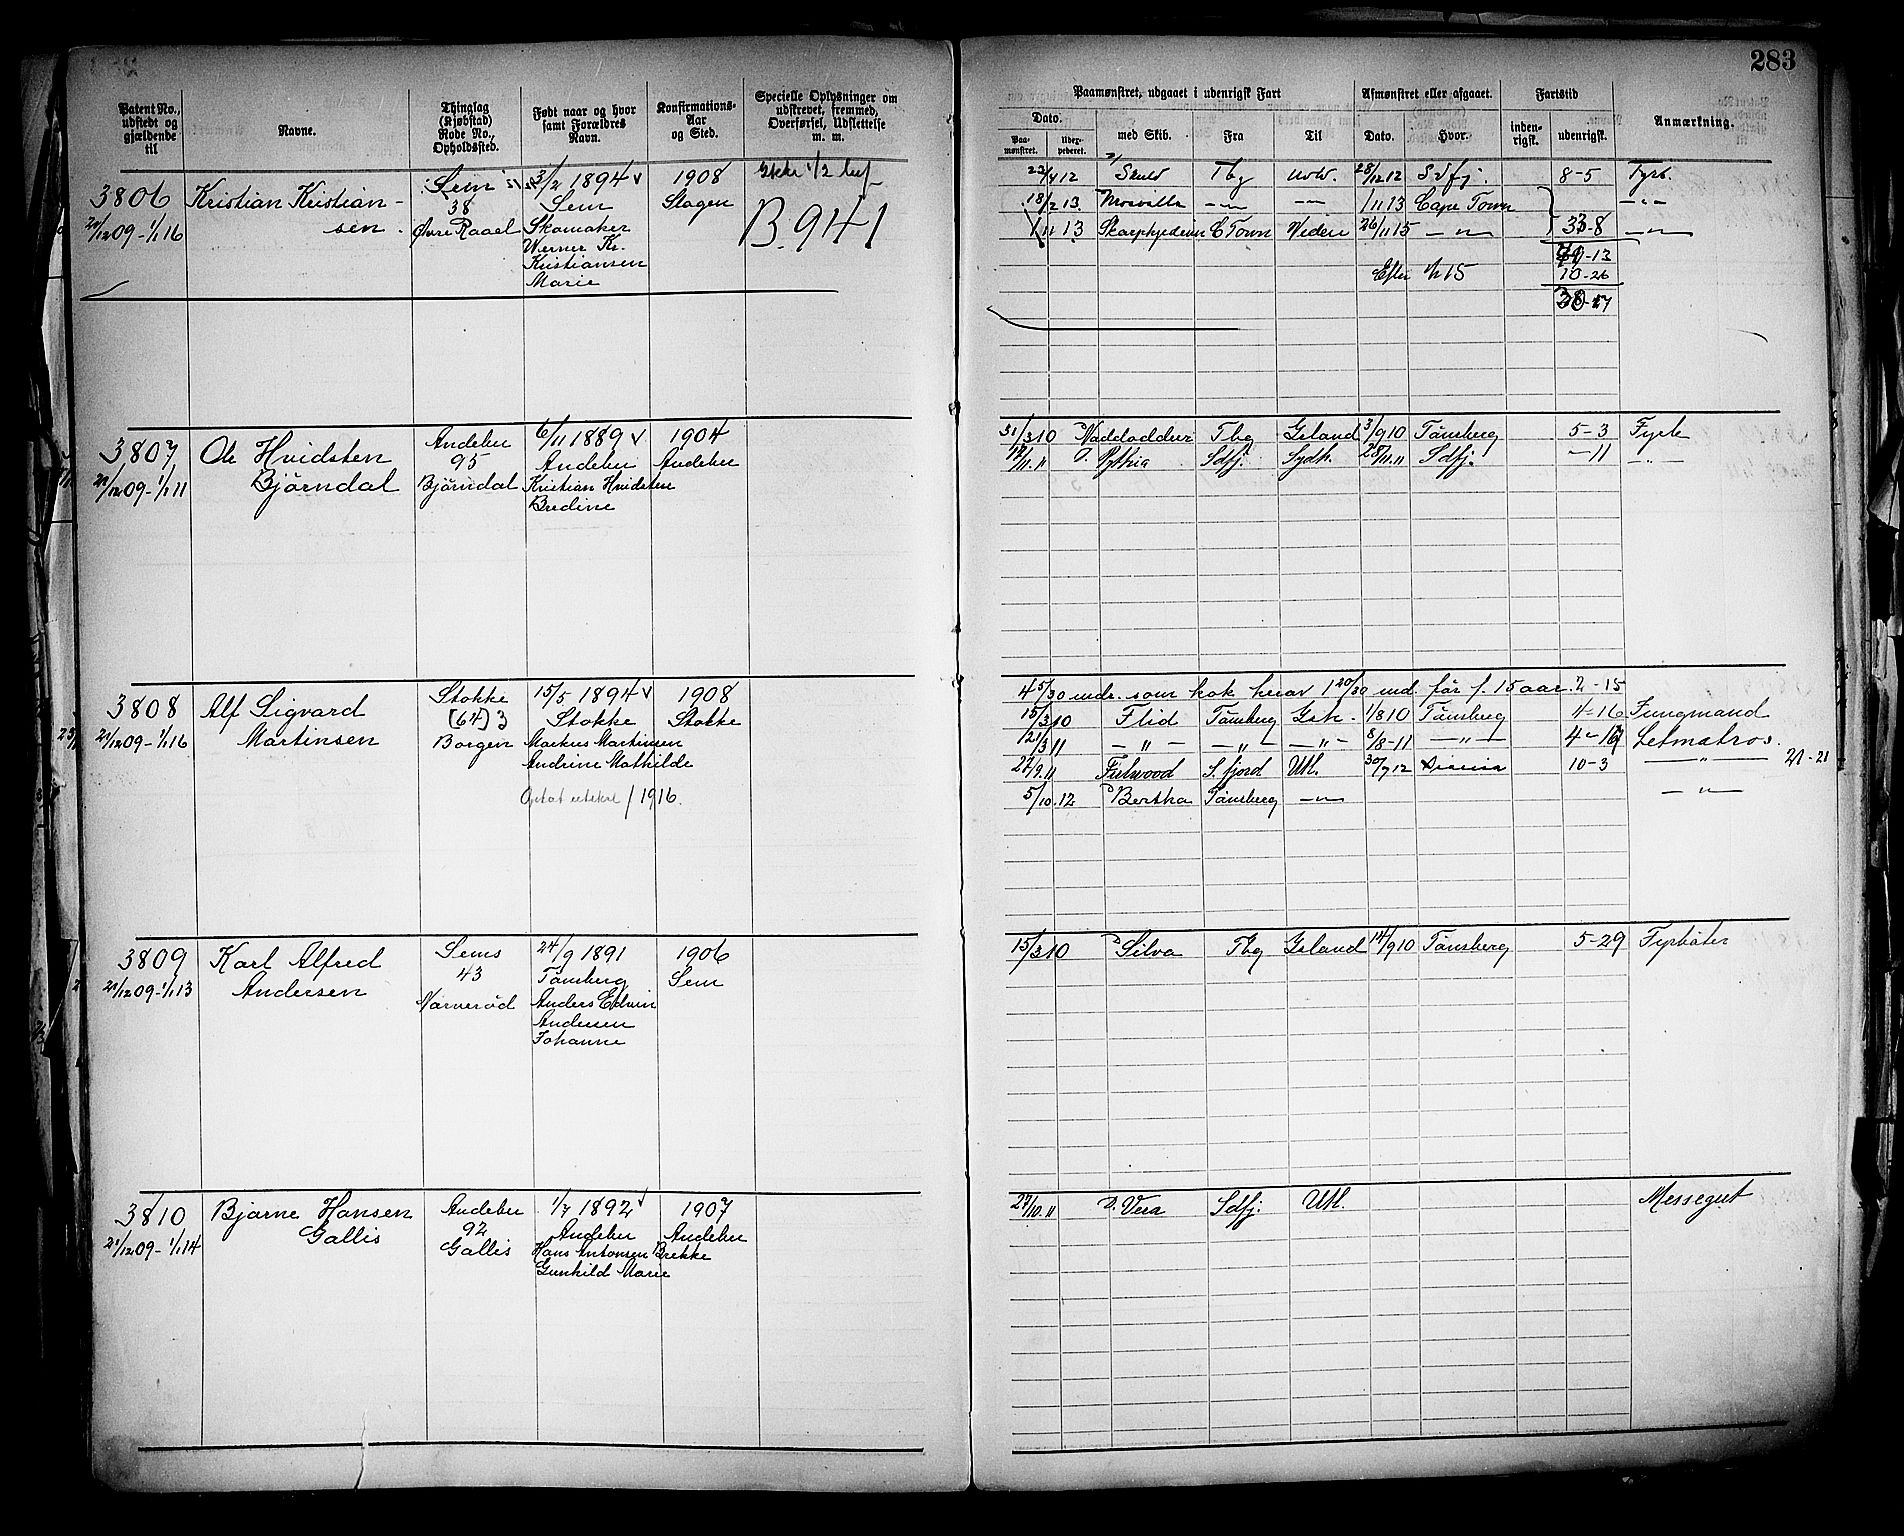 283
Patent No., udstedt og gjældende til
Navne.
Thinglag (Kjøbstad) Rode No., Opholdssted.
Født naar og hvor samt Forældres Navn.
Konfirmations-Aar og Sted.
Specielle Oplysninger om udstrevet, fremmed, Overførsel, Udslettelse m. m.
Paamønstret, udgaaet i udenrigsk Fart
Afmønstret eller afgaaet.
Fartstid
Anmærkning.
Dato.
Paamønstret.
Uderpederet.
med Skib.
Fra
Til
Dato.
Hvor.
indenrigsk.
udenrigsk.
3806
21/12 09-1/1 16
Kristian Kristiansen.
Sem
38
Øvre Raael
3/2 1894 v
Sem
Skomaker
Werner Kr.
Kristiansen
Marie
1908
Slagen
Ikke 1/2
B.941
23/4 12 Skuld Tbg 28/12 12 Sdfj. 8-5 Fyrb.
18/2 13 Morvilla -"- -"- 1/11 13 Cape Town -"-
1/11 13 Skarphjedin C Town Viden 26/11 15 -"- 33-8 -"-
Efter 1/1 15 10-26
3807
21/12 09-1/1 11
Ole Hvidsten
Bjørndal
Andebu
95
Bjørndal
6/11 1889 v
Andebu
Kristian Hvidsten
Bredine
1904
Andebu
31/3 10 Naddoddur Tbg Island 3/9 10 Tønsberg 5-3
11.11 Pythia Sdfj. Sydh. 28/11.11 Sdfj. -11 -"-
3808
21/12 09-1/1 16
Alf Sigvard
Martinsen
Stokke
(64) 3
Borgen
15/5 1894 v
Stokke
Markus Martinsen
Andrine Mathilde
1908
Stokke
/ 1916.
4 5/30 mdr. som kok herav 1 20/30 md. før f. 15 aar. 2-15
15/3 10 Flid Tønsberg Ish. 1/8 10 Tønsberg 4-16 Jungmand
12/3 11 -"- -"- -"- 8/8-11 -"- Letmatros.
27/9.11 Fielwood S.fjord Utl. 30/7 12 10-3 -"- 21-21
5/10.12 Bertha Tønsberg -"- -"-
3809
21/12 09-1/1 13
Karl Alfred
Andersen
Sems
43
Narverød
24/9 1891
Tønsberg
Anders Edvin
Andersen
Johanne
1906
Sem
15/3 10 Silva Tbg Island 14/9 10 Tønsberg 5-29 Fyrbøter
3810
21/12 09-1/1 14
Bjarne Hansen
Gallis
Andebu
92
Gallis
1/7 1892 v
Andebu
Hans Antonsen Brekke
Gunhild Marie
1907
Andebu
27/10.11 D. Vera Sdfj. Utl. Messegut